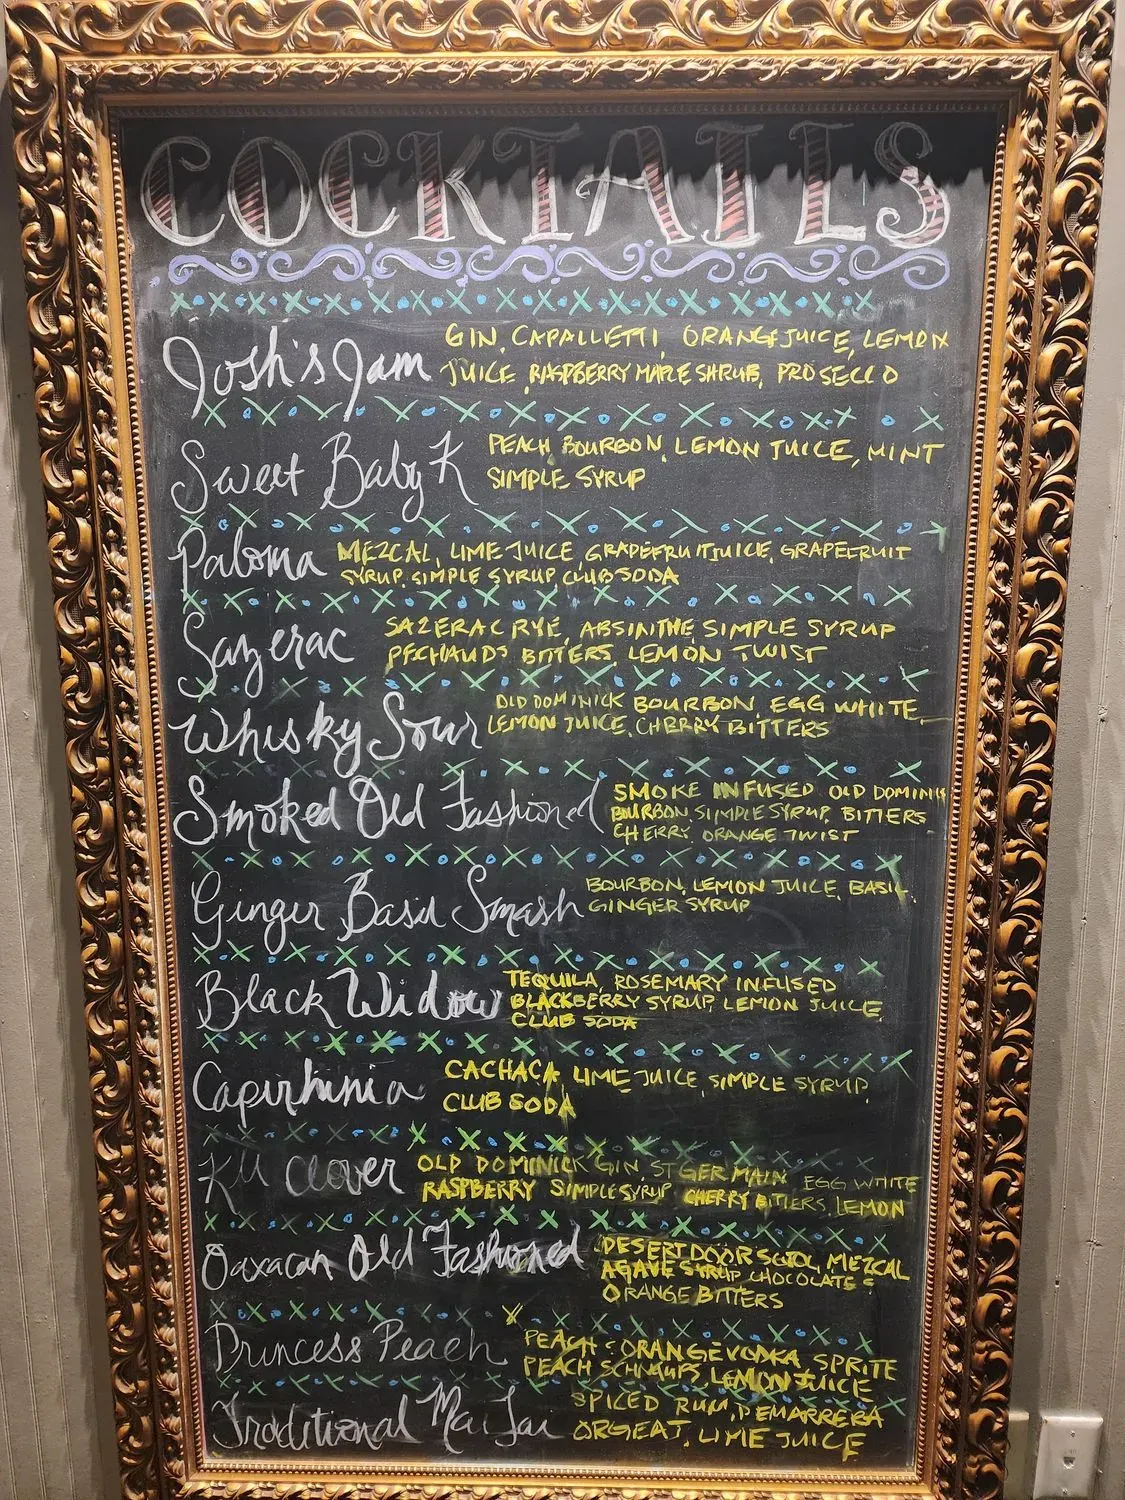 COCKTAILS
Josh's Jam
GIN, CAPALLETTI, ORANGE JUICE, LEMON
JUICE, RASPBERRY MAPLE SHRUB, PROSECCO
Sweet Baby K
PEACH BOURBON, LEMON JUICE, MINT
SIMPLE SYRUP
Paloma
MEZCAL, LIME JUICE, GRAPEFRUIT JUICE, GRAPEFRUIT
SYRUP, SIMPLE SYRUP, CLUB SODA
Sazerac
SAZERAC RYE, ABSINTHE, SIMPLE SYRUP
PECHAUDS BITTERS, LEMON TWIST
Whisky Sour
OLD DOMINICK BOURBON, EGG WHITE,
LEMON JUICE, CHERRY BITTERS
Smoked Old Fashioned
SMOKE INFUSED OLD DOMINIK
BOURBON, SIMPLE SYRUP, BITTERS
CHERRY, ORANGE TWIST
Ginger Basil Smash
BOURBON, LEMON JUICE, BASIL
GINGER SYRUP
Black Widow
TEQUILA, ROSEMARY INFUSED
BLACKBERRY SYRUP, LEMON JUICE,
CLUB SODA
Capirhinia
CACHACA, LIME JUICE, SIMPLE SYRUP,
CLUB SODA
KU Clover
OLD DOMINICK GIN, ST GERMAIN, EGG WHITE
RASPBERRY SIMPLE SYRUP, CHERRY BITTERS, LEMON
Oaxacan Old Fashioned
DESERT DOOR SOTOL, MEZCAL
AGAVE SYRUP, CHOCOLATE &
ORANGE BITTERS
Princess Peach
PEACH & ORANGE VODKA, SPRITE
PEACH SCHNAPPS, LEMON JUICE
Traditional Mai Tai
SPICED RUM, DEMARRERA
ORGEAT, LIME JUICE